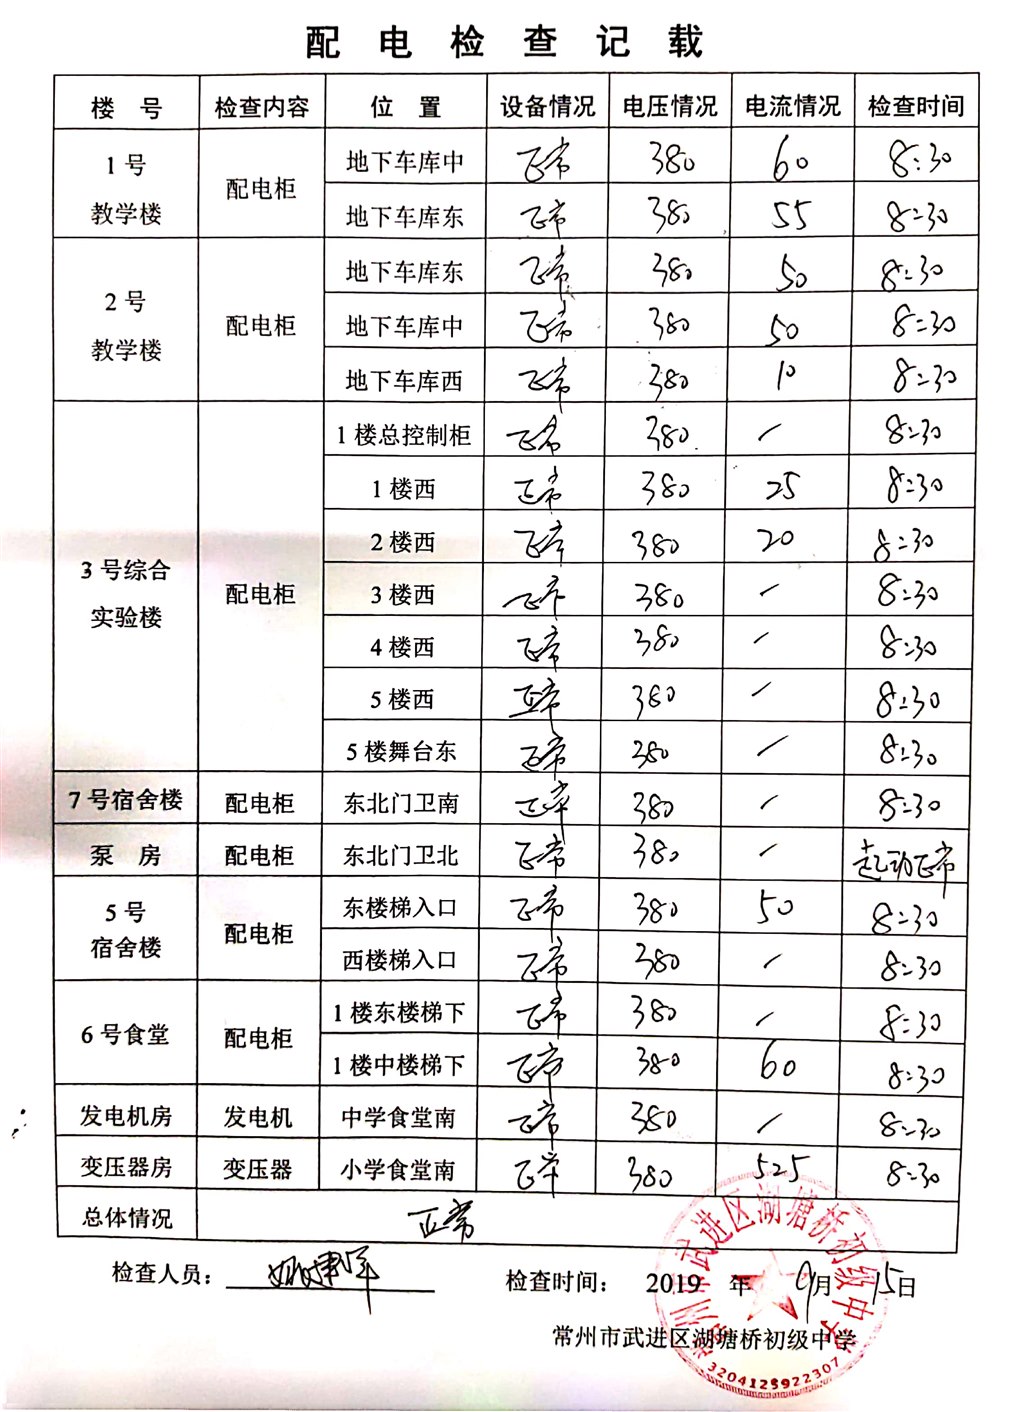 配 电 检 查 记 载
楼 号 检查内容 位 置 设备情况 电压情况 电流情况 检查时间
1号 教学楼 配电柜 地下车库中 正常 380 60 8:30
地下车库东 正常 380 55 8:30
2号 教学楼 配电柜 地下车库东 正常 380 50 8:30
地下车库中 正常 380 50 8:30
地下车库西 正常 380 10 8:30
3号综合 实验楼 配电柜 1楼总控制柜 正常 380 / 8:30
1楼西 正常 380 25 8:30
2楼西 正常 380 20 8:30
3楼西 正常 380 / 8:30
4楼西 正常 380 / 8:30
5楼西 正常 380 / 8:30
5楼舞台东 正常 380 / 8:30
7号宿舍楼 配电柜 东北门卫南 正常 380 / 8:30
泵 房 配电柜 东北门卫北 正常 380 / 起动正常
5号 宿舍楼 配电柜 东楼梯入口 正常 380 50 8:30
西楼梯入口 正常 380 / 8:30
6号食堂 配电柜 1楼东楼梯下 正常 380 / 8:30
1楼中楼梯下 正常 380 60 8:30
发电机房 发电机 中学食堂南 正常 380 / 8:30
变压器房 变压器 小学食堂南 正常 380 525 8:30
总体情况 正常
检查人员: 检查时间: 2019 年 9月 15日
常州市武进区湖塘桥初级中学
常州市武进区湖塘桥初级中学
3204125922307